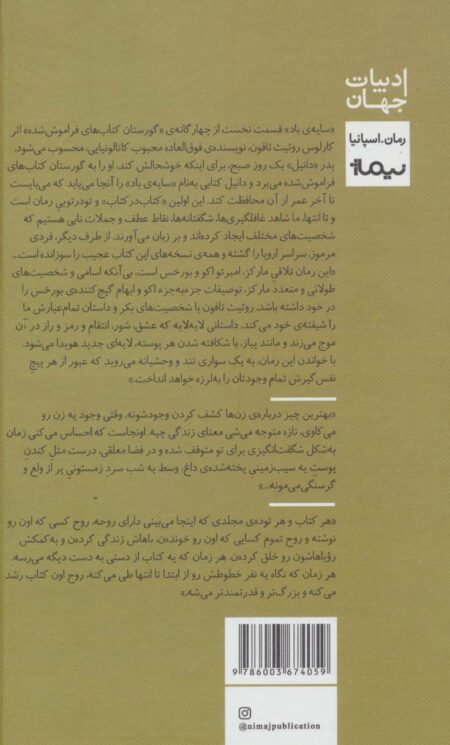 ادبیات
جهان
رمان.اسپانیا
نیماژ
«سایه‌ی باد» قسمت نخست از چهارگانه‌ی «گورستان کتاب‌های فراموش‌شده» اثر
کارلوس روئیث ثافون، نویسنده‌ی فوق‌العاده محبوب کاتالونیایی، محسوب می‌شود.
پدر «دانیل» یک روز صبح، برای اینکه خوشحالش کند، او را به گورستان کتاب‌های
فراموش‌شده می‌برد و دانیل کتابی به‌نام «سایه‌ی باد» را آنجا می‌یابد که می‌بایست
تا آخر عمر از آن محافظت کند. این اولین «کتاب‌درکتاب» و تودرتویی رمان است
و تا انتها، ما شاهد غافلگیری‌ها، شگفتانه‌ها، نقاط عطف و جملات نابی هستیم که
شخصیت‌های مختلف ایجاد کرده‌اند و بر زبان می‌آورند. از طرف دیگر، فردی
مرموز، سراسر اروپا را گشته و همه‌ی نسخه‌های این کتاب عجیب را سوزانده است...
«این رمان تلاقیِ مارکز، امبرتو اکو و بورخس است، بی‌آنکه اسامی و شخصیت‌های
طولانی و متعدد مارکز، توصیفات جزءبه‌جزء اکو و ابهام گیج کننده‌ی بورخس را
در خود داشته باشد. روئیث ثافون با شخصیت‌های بکر و داستان تمام‌عیارش ما
را شیفته‌ی خود می‌کند. داستانی لابه‌لابه که عشق، شور، انتقام و رمز و راز در آن
موج می‌زند و مانند پیاز، با شکافته شدن هر پوسته، لایه‌ای جدید هویدا می‌شود.
با خواندن این رمان، به یک سواری تند و وحشیانه می‌روید که عبور از هر پیچِ
نفس‌گیرش تمام وجودتان را به‌لرزه خواهد انداخت.»
«بهترین چیز درباره‌ی زن‌ها کشف کردن وجودشونه. وقتی وجود یه زن رو
می‌کاوی، تازه متوجه می‌شی معنای زندگی چیه. اونجاست که احساس می‌کنی زمان
به‌شکل شگفت‌انگیزی برای تو متوقف شده و در فضا معلقی، درست مثل کندنِ
پوستِ یه سیب‌زمینی پخته‌شده‌ی داغ، وسط یه شب سردِ زمستونیِ پر از ولع و
گرسنگی می‌مونه...»
«هر کتاب و هر توده‌ی مجلدی که اینجا می‌بینی دارای روحه. روح کسی که اون رو
نوشته و روح تموم کسایی که اون رو خونده‌ن، باهاش زندگی کرده‌ن و به‌کمکش
رؤیاهاشون رو خلق کرده‌ن. هر زمان که یه کتاب از دستی به دست دیگه می‌رسه،
هر زمان که نگاه یه نفر خطوطش رو از ابتدا تا انتها طی می‌کنه، روح اون کتاب رشد
می‌کنه و بزرگ‌تر و قدرتمندتر می‌شه.»
9 786003 674059
@nimajpublication